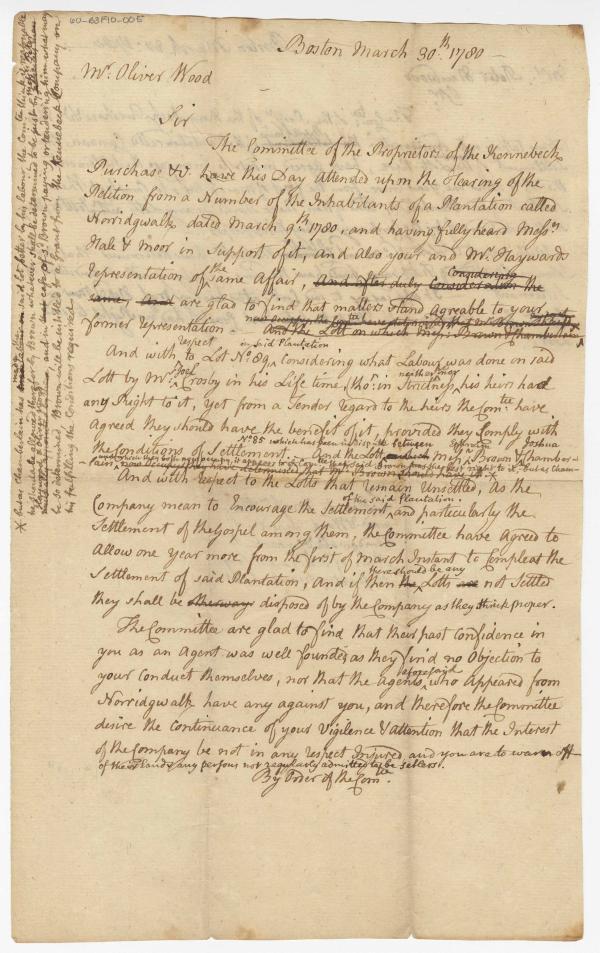 60-63F10-005
Boston March 30.th 1780
Mr. Oliver Wood
Sir
The Committee of the Proprietors of the Kennebeck
Purchase &c. have this Day attended upon the Hearing of the
Petition from a Number of the Inhabitants of a Plantation called
Norridgwalk dated March 9.th 1780, and having fully heard Mess.rs
Hale & Moor in Support of it, and also your and Mr. Haywards
Representation of the same Affair, And after duly Consideration Considering the
same, And are glad to find that matters stand agreable to your
former representation. And the Lott on which Mess.rs Brown & Chamberlain
And with respect to Lot No. 89, in said Plantation Considering what Labour was done on said
Lott by Mr. Joel Crosby in his Life time, tho. in Strictness neither he nor his heirs had
any Right to it, yet from a Tender regard to the heirs the Com.tee have
Agreed they should have the benefit of it, provided they Comply with
the Conditions of Settlement. And the Lott No. 85 which has been in dispute between Mess.rs Brown & Joshua Chamber-
lain,
And with respect to the Lotts that remain Unsettled, As the
Company mean to Encourage the Settlement of the said Plantation, and particularly the
Settlement of the Gospel among them, the Committee have Agreed to
Allow one year more from the first of March Instant to Compleat the
Settlement of said Plantation, And if then there should be any the Lotts are not Settled
they shall be otherway disposed of by the Company as they think proper.
The Committee are glad to find that their past Confidence in
you as an Agent was well founded as they find no Objection to
your Conduct themselves, nor that the Agents aforesaid who appeared from
Norridgwalk have any against you, and therefore the Committee
desire the Continuance of your Vigilence & attention that the Interest
of the Company be not in any respect Injured and you are to warn off
of the Land any persons not regularly admitted to be Settlers.
By Order of the Com.tee
x but as Chamberlain has made said Lot better by his labour, the Com.tee think it reasonable
he should be allowed therefor by Brown, whatever shall be determined to be just by
and in case of s.d Brown paying or tendering him what may
be so determined, Brown will be intitled to a Grant from the Kennebeck Company on
his fulfilling the Conditions required.